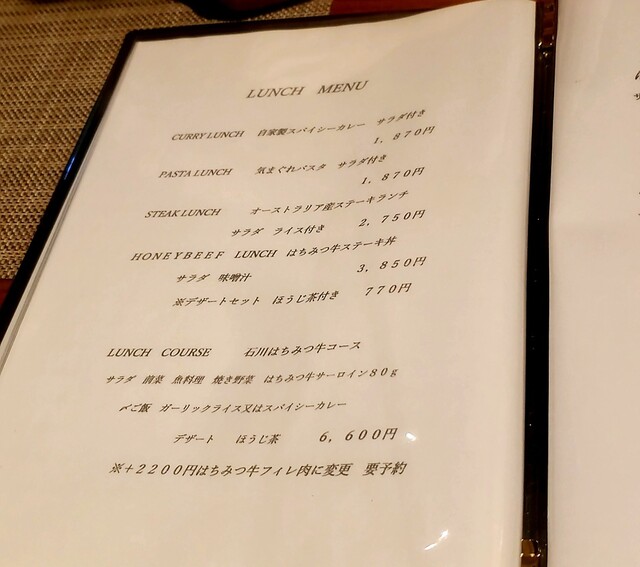 LUNCH MENU
CURRY LUNCH 自家製スパイシーカレー サラダ付き
1，870円
PASTA LUNCH 気まぐれパスタ サラダ付き
1，870円
STEAK LUNCH オーストラリア産ステーキランチ
サラダ ライス付き 2，750円
HONEYBEEF LUNCH はちみつ牛ステーキ丼
サラダ 味噌汁 3，850円
※デザートセット ほうじ茶付き 770円
LUNCH COURSE 石川はちみつ牛コース
サラダ 前菜 魚料理 焼き野菜 はちみつ牛サーロイン80g
〆ご飯 ガーリックライス又はスパイシーカレー
デザート ほうじ茶 6，600円
※＋2200円はちみつ牛フィレ肉に変更 要予約